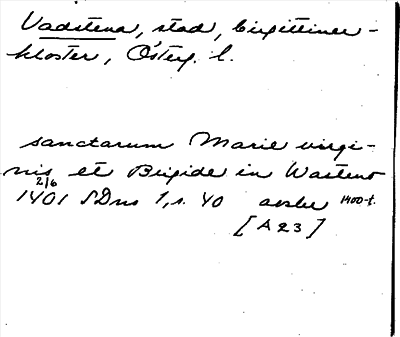 Vadstena, stad, birgittiner-
kloster, Österg. l.
sanctarum Marie virgi-
nis et Birgide in Wasteno
2/6
1401 SDns 1, s. 40 avskr 1400-t.
[A 23]